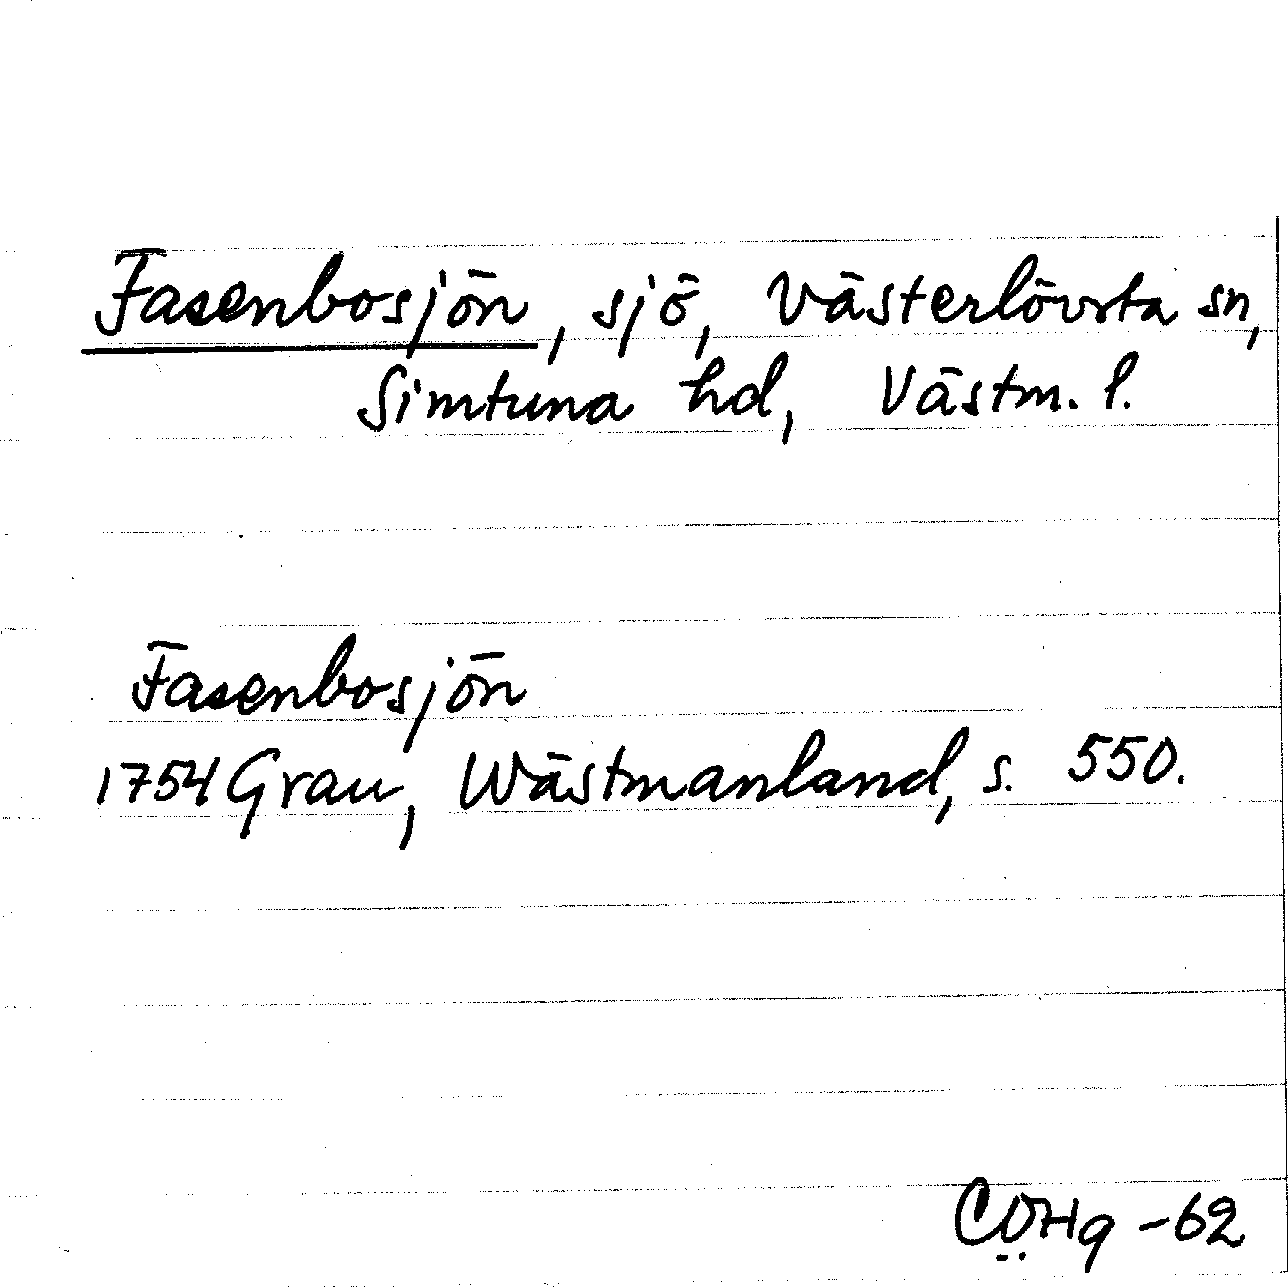 Fasenbosjön, sjö, Västerlövsta sn,
Simtuna hd, Västm. l.
Fasenbosjön
1754 Grau, Wästmanland, s. 550.
-62